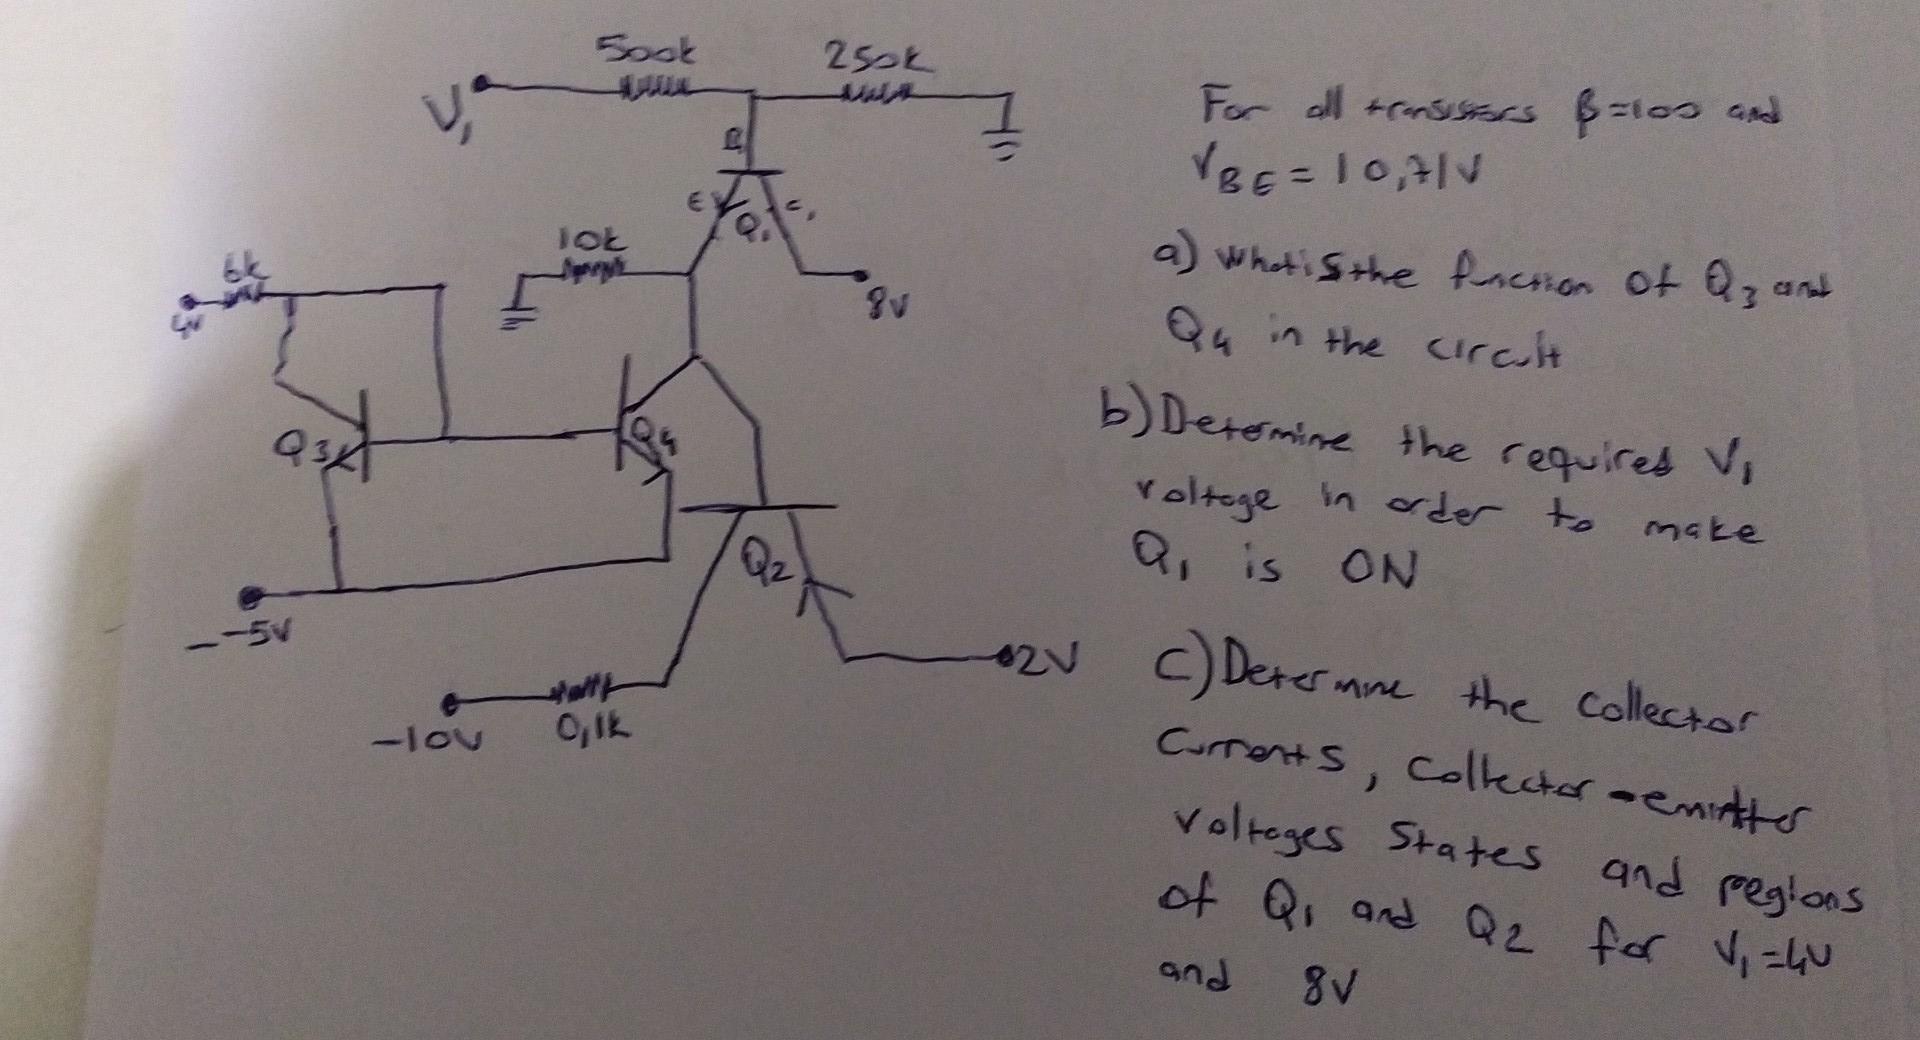 500k
250k
V₁
B
E
C₁
Q₁
10k
6k
4V
8V
Q3
Q4
Q2
--5V
2V
-10V
0,1k
For all transistors β=100 and
VBE = |0,7|V
a) What is the function of Q3 and
Q4 in the circuit
b) Determine the required V₁
voltage in order to make
Q₁ is ON
C) Determine the Collector
Currents, Collector-emitter
voltages States and regions
of Q₁ and Q2 for V₁=4V
and 8V